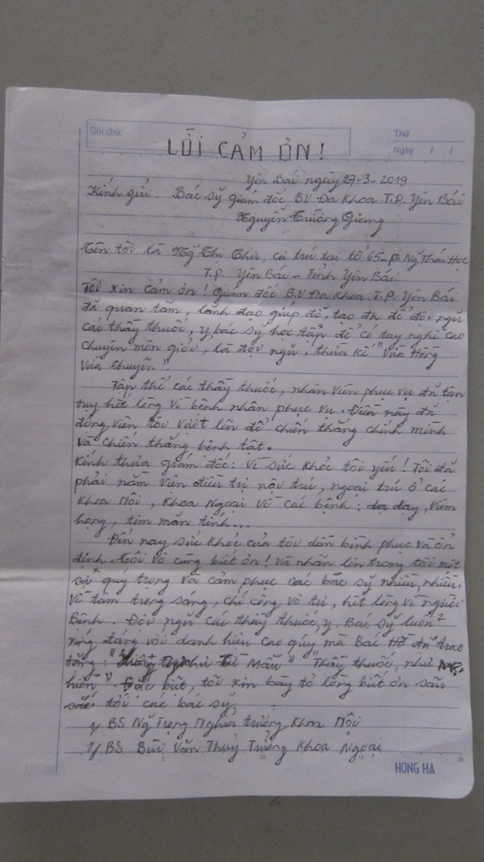 Ghi chúc
Thứ
Ngày / /
LỜI CẢM ƠN!
Yên Bái ngày 27-3-2019
Kính gửi: Bác sỹ giám đốc B.V Đa Khoa T.P Yên Bái
Nguyễn Trường Giang
Tên tôi là Ng̃ Thị Thu, cư trú tại tổ 65-p. Ng̃ Thái Học
T.P. Yên Bái - Tỉnh Yên Bái
Tôi xin cảm ơn! Giám đốc B.V Đa Khoa T.P Yên Bái
đã quan tâm, lãnh đạo giúp đỡ, tạo đk để đội ngũ
các thầy thuốc, y, bác sỹ học tập để có tay nghề cao
chuyên môn giỏi, là đội ngũ, thừa kế "Vừa Hồng
Vừa Chuyên".
Tập thể các thầy thuốc, nhân viên phục vụ đã tận
tụy hết lòng vì bệnh nhân phục vụ. Điều này đã
động viên tôi vượt lên để chiến thắng chính mình
và chiến thắng bệnh tật.
Kính thưa giám đốc: Vì sức khỏe tôi yếu! Tôi đã
phải nằm viện điều trị nội trú, ngoại trú ở các
Khoa Nội, Khoa Ngoại về các bệnh: dạ dày, viêm
họng, tim mãn tính...
Đến nay sức khỏe của tôi dần bình phục và ổn
định. Tôi vô cùng biết ơn! Và nhân lên trong tôi một
sự quý trọng và cảm phục các bác sỹ nhiều, nhiều.
Vì tâm trong sáng, chí công vô tư, hết lòng vì người
bệnh. Đội ngũ các thầy thuốc, y, Bác sỹ luôn²
xứng đáng với danh hiệu cao qúy mà Bác Hồ đã trao
tặng: "Lương Y như Từ Mẫu" "Thầy thuốc, như mẹ
hiền". Đặc biệt, tôi xin bày tỏ lòng biết ơn sâu
sắc tới các bác sỹ:
BS. Ng̃ Trọng Nghĩa trưởng Khoa Nội
BS. Bùi Văn Thủy Trưởng Khoa Ngoại
HONG HA